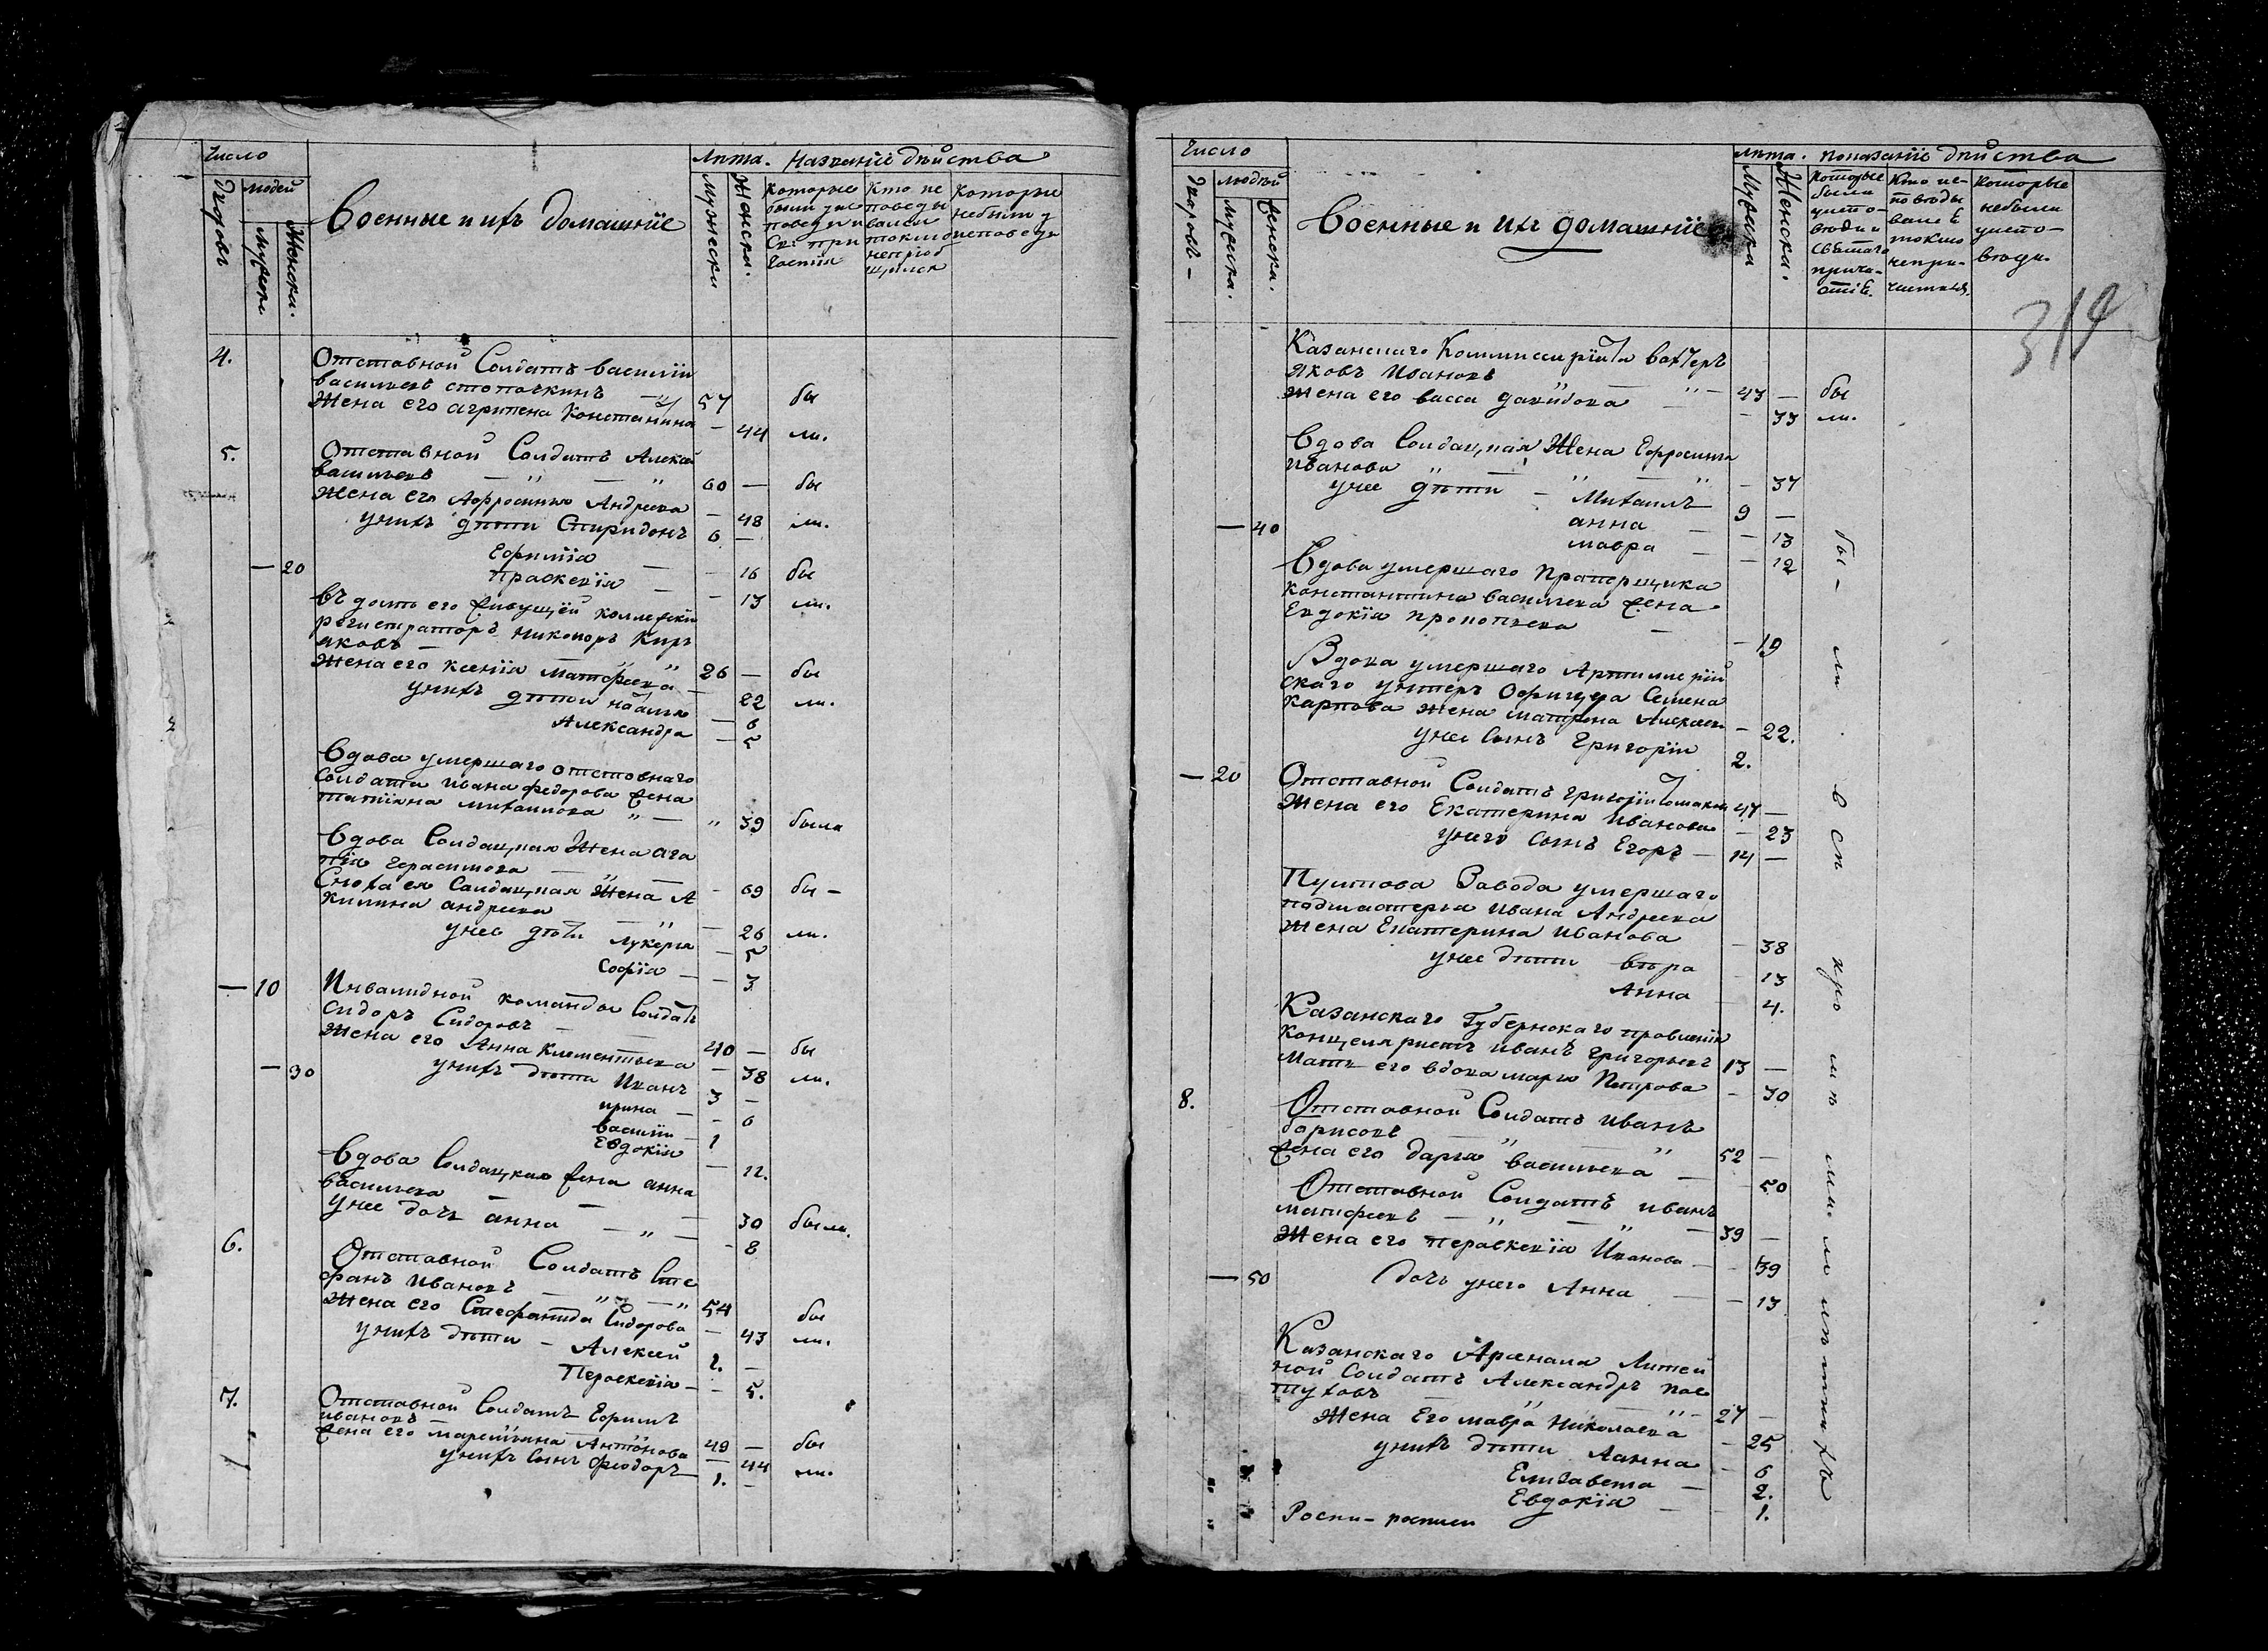 Число
людей
Дворовъ
Мужеска
Женска.
Военные и ихъ домашнїе
Лѣта.
Мужеска
Женска.
Названїе дѣйства
Которые
были у ис
поведи и
Св: при
частїя
Кто не
поведы
вался
токмо
непрїоб
щился
Которые
небыли у
исповеди
4.
Отставной Солдатъ василїй
васильевъ 57 бы
Жена его агрипена Констанинова — 44 ли.
5.
Отставной Солдатъ Алексей
васильевъ — " — " 60 — бы
Жена его Афросинья Андреева — 48 ли.
унихъ дѣти Спиридонъ 6 —
Ефимїя — — 16 бы
— 20
Праскевїя — — 13 ли.
Въ доме его живущей колежскїй
регистраторъ Никоноръ Кирь
яковъ — " " 26 — бы
Жена его ксенїя Матфеева — 22 ли.
унихъ дѣти наталья — 6
Александра — 5
Вдова умершаго отставнаго
Солдата ивана федорова жена
татїяна михаилова " — " 39 была
Вдова Солдацкая Жена ага
пїя герасимова — — 69 бы —
Сноха ея Солдацкая Жена А
килина андреева — " — 26 ли.
унее дѣти Лукерья — 5
Софїя — — 3
— 10
Инвалидной команды Солдатъ
Сидоръ Сидоровъ — 40 — бы
Жена его Анна Клементьева — 38 ли.
— 30
унихъ дѣти Иванъ 3 —
ирина — — 6
василїи — 1
Евдокїя — 11.
Вдова Солдацкая жена анна
васильева — — — 30 была.
унее дочь анна — " — — 8
6.
Отставной Солдатъ Сте
фанъ Ивановъ — " — " 54 бы
Жена его Стефанида Сидорова — 43 ли.
унихъ дѣти — Алексей 2. —
Пераскевїя — — 5.
7.
Отставной Солдатъ Ефимъ
ивановъ 49 — бы
жена его маремьяна Антонова — 44 ли.
унихъ Сынъ Феодоръ — 1. —
Число
людей
Дворовъ —
Мужска.
Женска.
Военные и ихъ домашнїе
лѣта.
Мужска
Женска.
показанїе дѣйства
Которые
были
уиспо-
веди и
Святаго
прича-
стїя.
Кто ис-
поведы
вался
токмо
непри-
частился.
Которые
небыли
уиспо-
веди.
319
Казанскаго Коммиссарїата вахтеръ
Яковъ Ивановъ " 43 — бы
Жена его васса давидова — " — — 33 ли.
Вдова Солдацкая Жена Ефросинья
иванова " — " — " — 37
унее дѣти — Михаилъ 9 —
— 40
анна — — 13
мавра — — 12
Вдова умершаго Прапорщика
Константина васильева жена
Евдокїя прокопьева — — 19
Вдова умершаго Артиллерїй
скаго унтеръ Офицера Семена
Карпова Жена матрена Алексеева — 22.
унее Сынъ Григорїи 2.
— 20
Отставной Солдатъ григорїи 47 —
Жена его Екатерина Иванова — 23
унего Сынъ Егоръ — 14 —
Завода умершаго
подмастерья Ивана Андреева
Жена Екатерина Иванова — 38
унее дѣти вѣра — 13
Анна — 4.
Казанскаго Губернскаго правленїя
Концеляристъ иванъ Григорьевъ 13 —
Мать его вдова марья Петрова — 30
8.
Отставной Солдатъ Иванъ
борисовъ — " — " 52 —
жена его дарья васильева — — 50
Отставной Солдатъ иванъ
матфеевъ — " — " — 39 —
Жена его Пераскевїя Иванова — — 39
— 50
дочь унего Анна — — 13
Казанскаго Арсенала Литей
ной Солдатъ Александръ пос
туховъ — " — 27 —
Жена Его мавра Николаева — 25
унихъ дѣти Аанна — 6
Елизавета — 2.
Евдокїя — — 1.
бы — ли. всѣ кромѣ